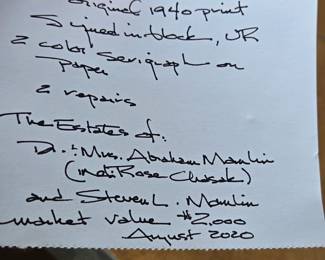 original 1940 print
Signed in block, UR
2 color Serigraph on
Paper
2 repairs
The Estates of:
Dr. & Mrs. Abraham Mamlin
(indi Rose
and Steven L. Mamlin
market value $2,000
August 2020